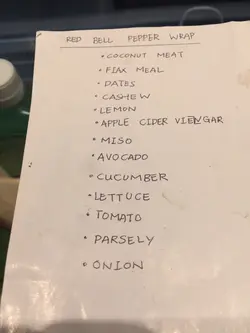 RED BELL PEPPER WRAP
• COCONUT MEAT
• FLAX MEAL
• DATES
• CASHEW
• LEMON
• APPLE CIDER VIEWGAR
• MISO
• AVOCADO
• CUCUMBER
• LETTUCE
• TOMATO
• PARSELY
• ONION